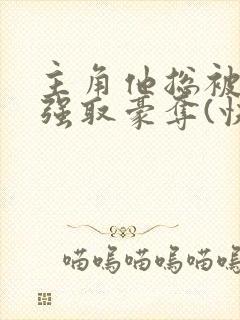 主角他总被
强取豪夺(快
喵呜喵呜喵呜